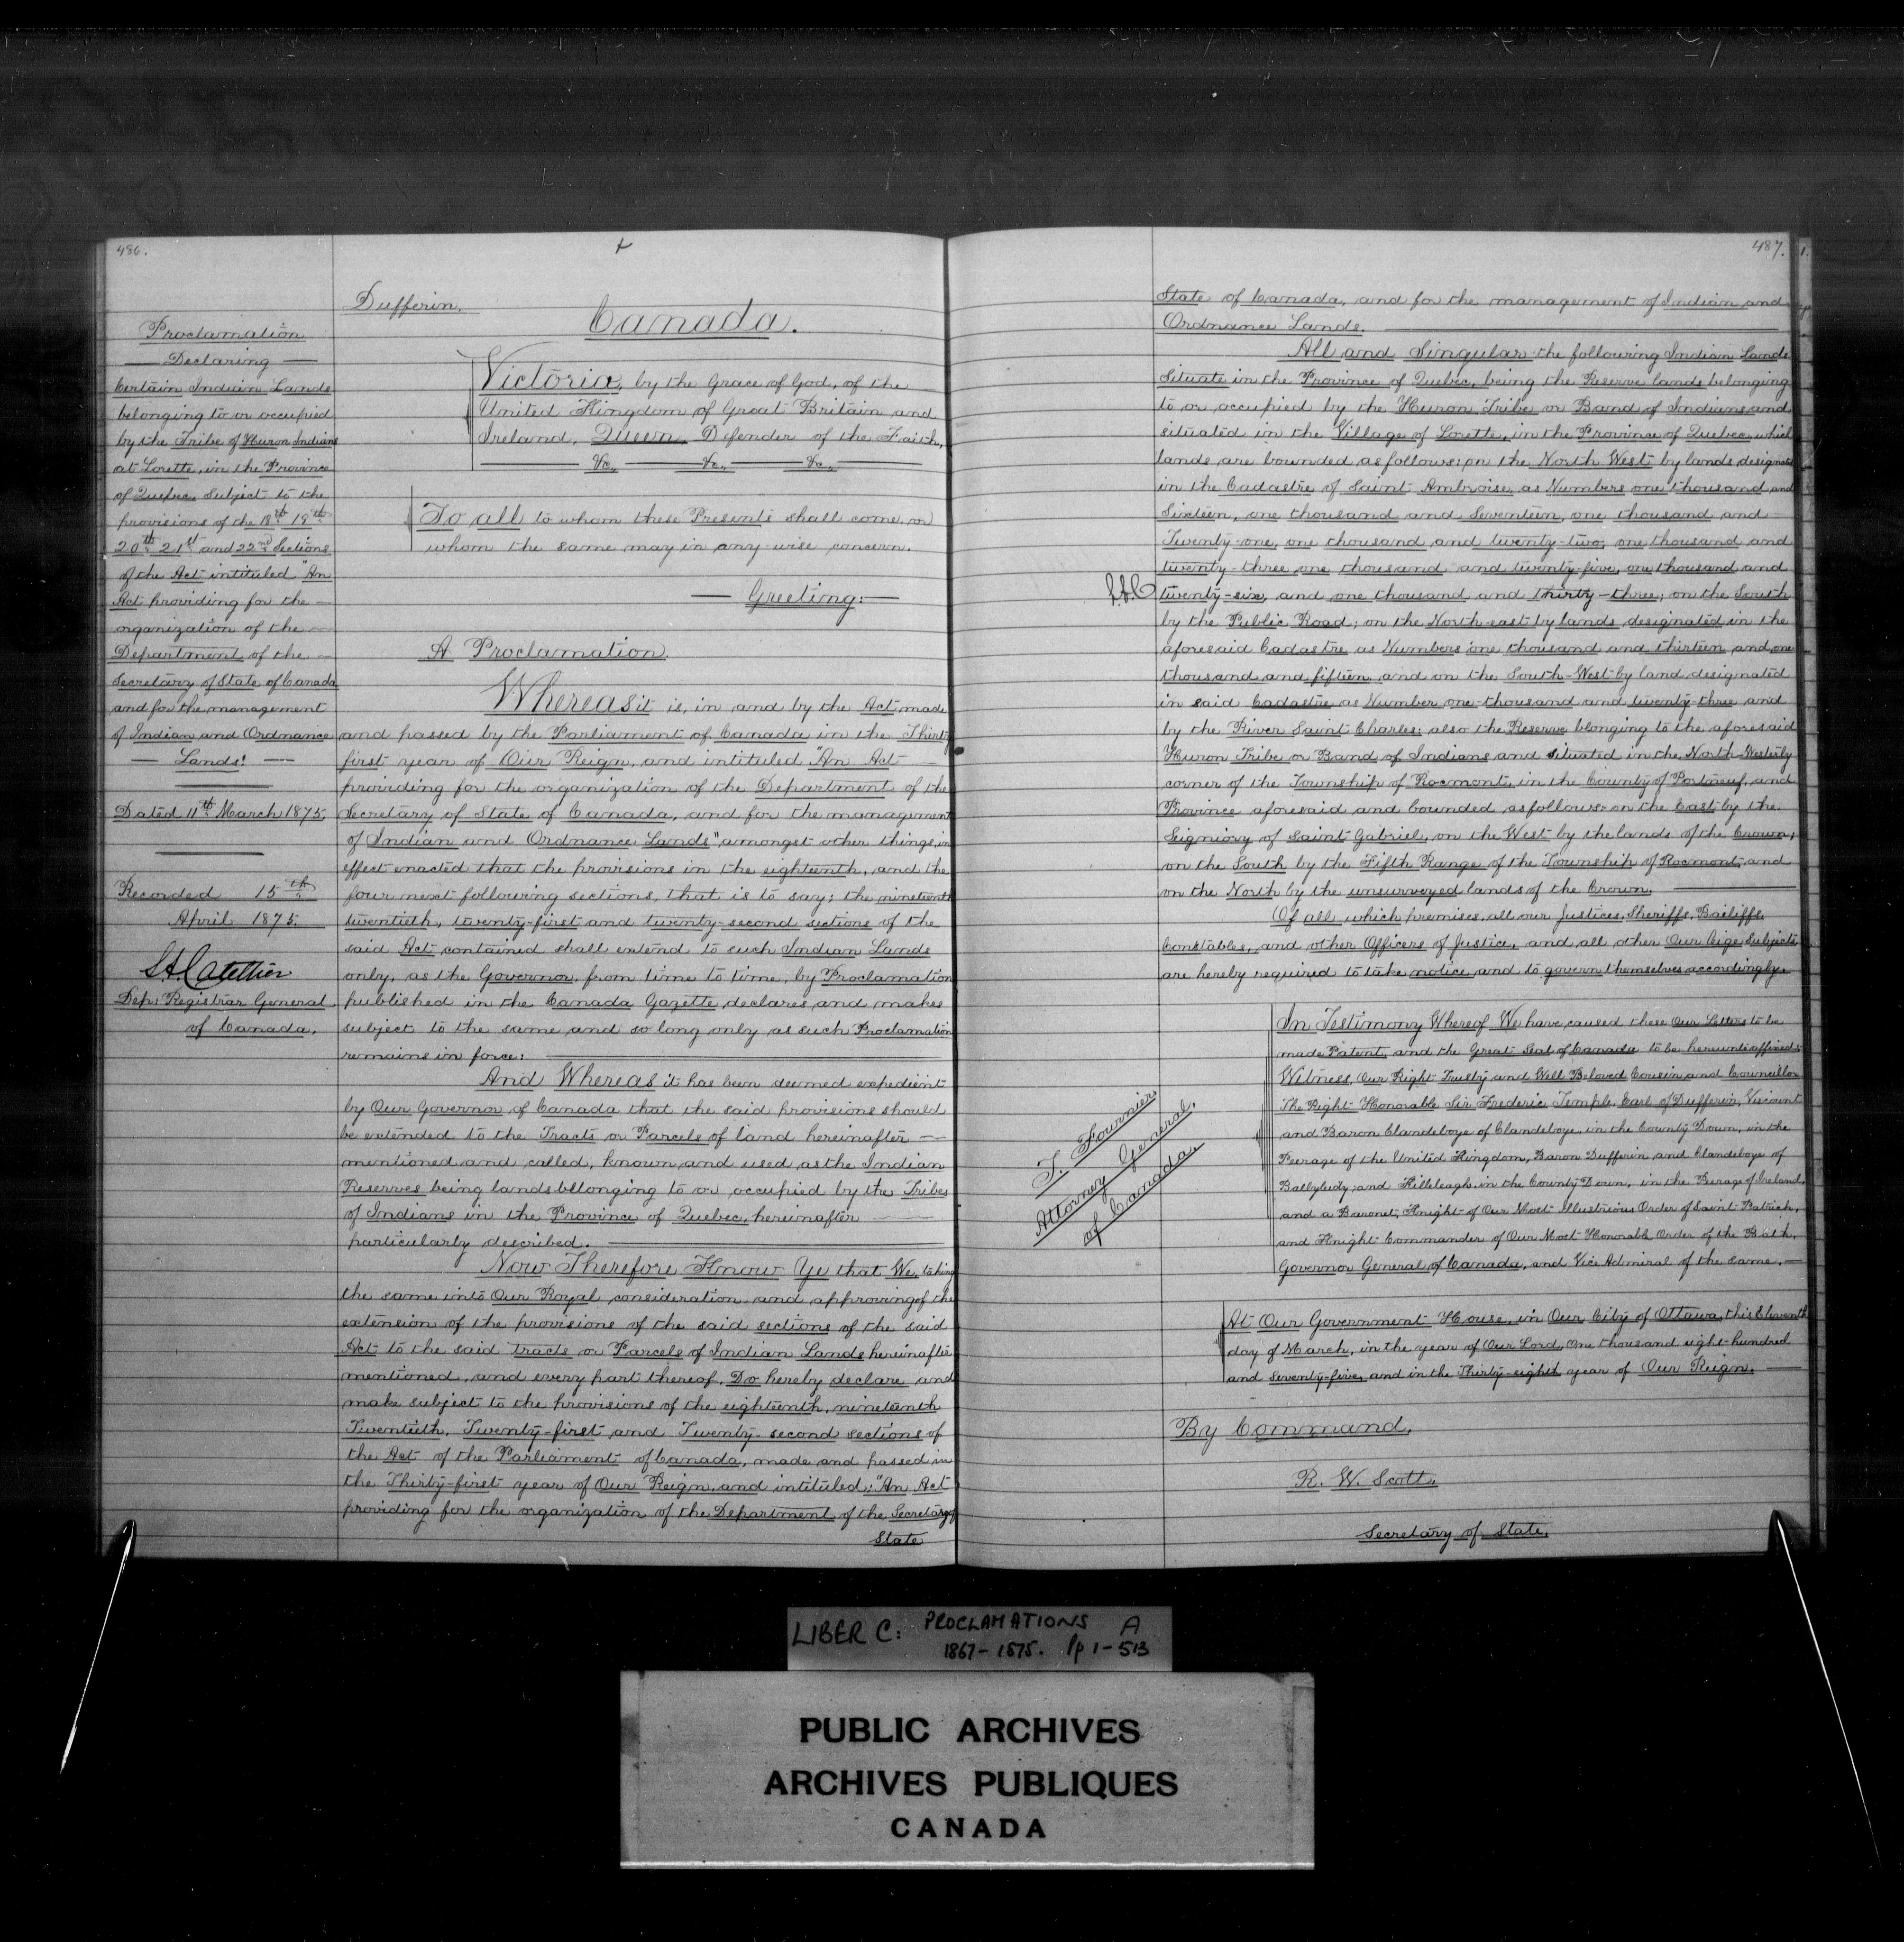 486.
Proclamation
Declaring
Certain Indian Lands
belonging to or occupied
by the Tribe of Huron Indians
at Lorette, in the Province
of Quebec, subject to the
provisions of the 18th 19th
20th 21st and 22nd Sections
of the Act intituled "An
Act providing for the
organization of the
Department of the
Secretary of State of Canada
and for the management
of Indian and Ordnance
Lands."
Dated 11th March 1875.
Recorded 15th
April 1875.
Dep: Registrar General
of Canada.
Dufferin.
Canada.
Victoria, by the Grace of God, of the
United Kingdom of Great Britain and
Ireland, Queen, Defender of the Faith,
&c., &c., &c.,
To all to whom these Presents shall come, or
whom the same may in any wise concern.
Greeting:
A Proclamation.
Whereas it is, in and by the Act, made
and passed by the Parliament of Canada in the Thirty
first year of Our Reign, and intituled "An Act
providing for the organization of the Department of the
Secretary of State of Canada, and for the management
of Indian and Ordnance Lands" amongst other things, in
effect enacted that the provisions in the eighteenth, and the
four next following sections, that is to say; the nineteenth
twentieth, twenty-first and twenty-second sections of the
said Act contained shall extend to such Indian Lands
only, as the Governor, from time to time, by Proclamation
published in the Canada Gazette, declares, and makes
subject to the same and so long only as such Proclamation
remains in force:
And Whereas it has been deemed expedient
by Our Governor of Canada that the said provisions should
be extended to the Tracts or Parcels of land hereinafter
mentioned and called, known, and used as the Indian
Reserves being lands belonging to or occupied by the Tribes
of Indians in the Province of Quebec, hereinafter
particularly described.
Now Therefore Know Ye that We, taking
the same into Our Royal consideration and approving of the
extension of the provisions of the said sections of the said
Act to the said tracts or Parcels of Indian Lands hereinafter
mentioned, and every part thereof, Do hereby declare and
make subject to the provisions of the eighteenth, nineteenth
Twentieth, Twenty-first and Twenty-second sections of
the Act of the Parliament of Canada, made and passed in
the Thirty-first year of Our Reign, and intituled; "An Act
providing for the organization of the Department of the Secretary of
State
487.
State of Canada, and for the management of Indian and
Ordnance Lands.
All and Singular the following Indian Lands
situate in the Province of Quebec, being the Reserve lands belonging
to or occupied by the Huron Tribe or Band of Indians and
situated in the Village of Lorette, in the Province of Quebec, which
lands are bounded as follows: on the North West by lands designated
in the Cadastre of Saint Ambroise, as Numbers one thousand and
Sixteen, one thousand and Seventeen, one thousand and
Twenty-one, one thousand and twenty-two, one thousand and
twenty-three one thousand and twenty-five, one thousand and
twenty-six, and one thousand and thirty-three; on the South
by the Public Road; on the North-east by lands designated in the
aforesaid Cadastre as Numbers one thousand and thirteen and one
thousand and fifteen and on the South-West by land designated
in said Cadastre as Number one thousand and twenty-three and
by the River Saint Charles: also the Reserve blonging to the aforesaid
Huron Tribe or Band of Indians and situated in the North Westerly
corner of the Township of Rocmont, in the County of Portneuf, and
Province aforesaid and bounded as follows: on the East by the
Seigniory of Saint Gabriel, on the West by the lands of the Crown;
on the South by the Fifth Range of the Township of Rocmont, and
on the North by the unsurveyed lands of the Crown.
Of all which premises, all our Justices, Sheriffs, Bailiffs,
Constables, and other Officers of Justice, and all other Our liege Subjects
are hereby required to take notice, and to govern themselves accordingly.
In Testimony Whereof We have caused these Our Letters to be
made Patent, and the Great Seal of Canada to be hereunto affixed:
Witness, Our Right Trusty and Well Beloved Cousin and Councillor
The Right Honorable Sir Frederic Temple, Earl of Dufferin, Viscount
and Baron Clandeboye of Clandeboye, in the County Down, in the
Peerage of the United Kingdom, Baron Dufferin and Clandeboye of
Ballyleidy, and Killeleagh, in the County Down, in the Peerage of Ireland,
and a Baronet, Knight of Our Most Illustrious Order of Saint Patrick,
and Knight Commander of Our Most Honorable Order of the Bath,
Governor General of Canada, and Vice Admiral of the same.
T. Fournier
Attorney General.
of Canada.
At Our Government House, in Our City of Ottawa, this Eleventh
day of March, in the year of Our Lord, One thousand eight hundred
and seventy-five, and in the Thirty-eighth year of Our Reign.
By Command,
R. W. Scott,
Secretary of State.
LIBER C: PROCLAMATIONS A
1867-1875. Pp 1-513
PUBLIC ARCHIVES
ARCHIVES PUBLIQUES
CANADA